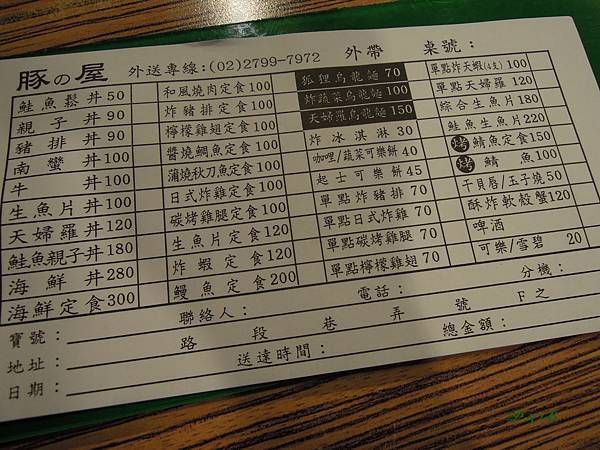 豚の屋 外送專線:(02)2799-7972 外帶 桌號:
鮭魚鬆丼50
親子丼90
豬排丼90
南蠻丼100
牛丼100
生魚片丼100
天婦羅丼120
鮭魚親子丼180
海鮮丼280
海鮮定食300
和風燒肉定食100
炸豬排定食100
檸檬雞翅定食100
醬燒鯛魚定食100
蒲燒秋刀魚定食100
日式炸雞定食100
碳烤雞腿定食100
生魚片定食120
炸蝦定食120
鰻魚定食200
狐狸烏龍麵70
炸蔬菜烏龍麵100
天婦羅烏龍麵150
炸冰淇淋30
咖哩/蔬菜可樂餅40
起士可樂餅45
單點炸豬排70
單點日式炸雞70
單點碳烤雞腿70
單點檸檬雞翅70
單點炸天蝦(4支)100
單點天婦羅120
綜合生魚片180
鮭魚生魚片220
烤鯖魚定食150
烤鯖魚100
干貝唇/玉子燒50
酥炸軟殼蟹120
啤酒
可樂/雪碧20
寶號: 聯絡人: 電話: 分機:
地址: 路 段 巷 弄 號 F之
日期: 送達時間: 總金額: